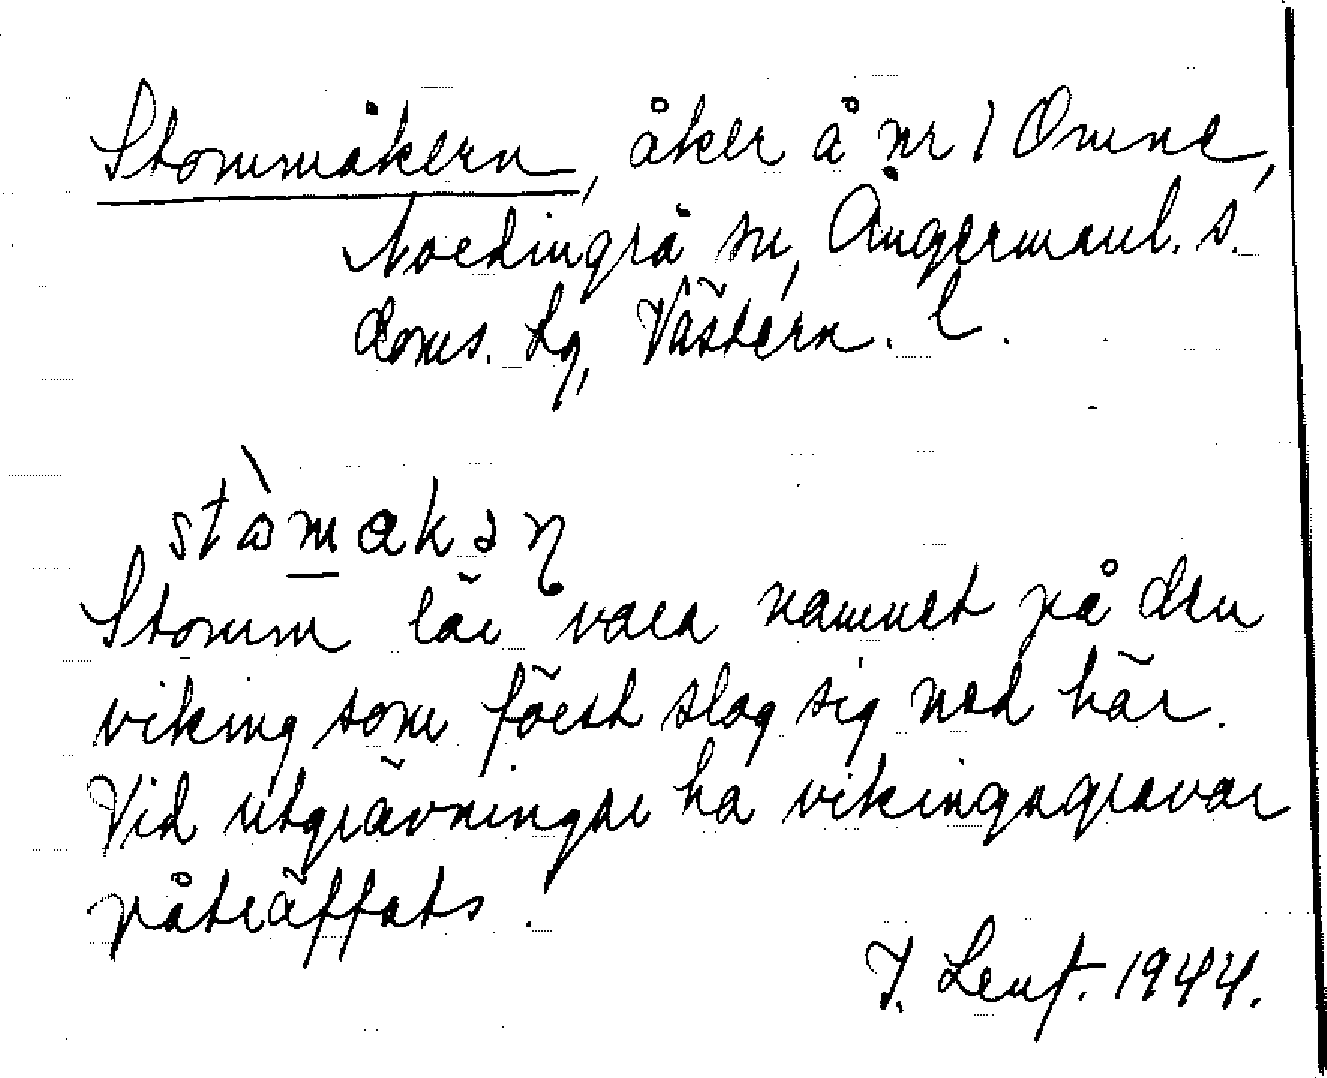 Stommåkern, åker å nr 1 Omne,
Nordingrå sn, Ångermanl. s.
doms. lg, Västern. l.
stòmakəṇ
Stomm lär vara namnet på den
viking som först slog sig ned här.
Vid utgrävningar ha vikingagravar
påträffats.
1944.